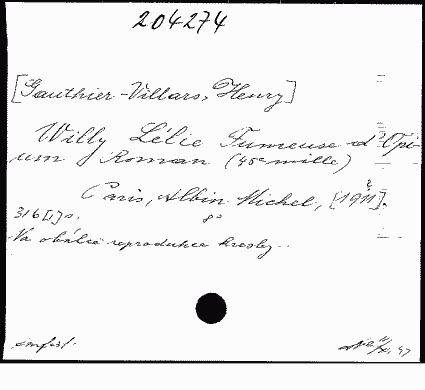 204274
[Gauthier-Villars, Henry]
Willy Lélie Fumeuse d'Opi-
um Roman (45e mille)
Paris, Albin Michel, [1911?].
316 [1] s. 8°
Na obálce reprodukce kresby.